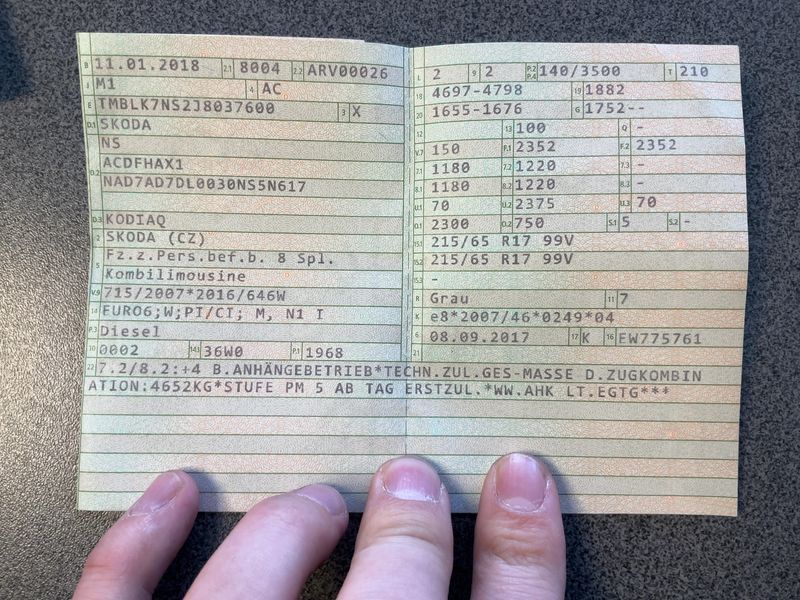 B 11.01.2018 2.1 8004 2.2 ARV00026
J M1 4 AC
E TMBLK7NS2J8037600 3 X
D.1 SKODA
NS
D.2 ACDFHAX1
NAD7AD7DL0030NS5N617
D.3 KODIAQ
2 SKODA (CZ)
5 Fz.z.Pers.bef.b. 8 Spl.
Kombilimousine
V.9 715/2007*2016/646W
14 EURO6;W;PI/CI; M, N1 I
P.3 Diesel
10 0002 14.1 36W0 P.1 1968
L 2 9 2 P.2 P.4 140/3500 T 210
18 4697-4798 19 1882
20 1655-1676 G 1752--
12 13 100 Q -
V.7 150 F.1 2352 F.2 2352
7.1 1180 7.2 1220 7.3 -
8.1 1180 8.2 1220 8.3 -
U.1 70 U.2 2375 U.3 70
O.1 2300 O.2 750 S.1 5 S.2 -
15.1 215/65 R17 99V
15.2 215/65 R17 99V
15.3 -
R Grau 11 7
K e8*2007/46*0249*04
6 08.09.2017 17 K 16 EW775761
21
22 7.2/8.2:+4 B.ANHÄNGEBETRIEB*TECHN.ZUL.GES-MASSE D.ZUGKOMBIN
ATION:4652KG*STUFE PM 5 AB TAG ERSTZUL.*WW.AHK LT.EGTG***